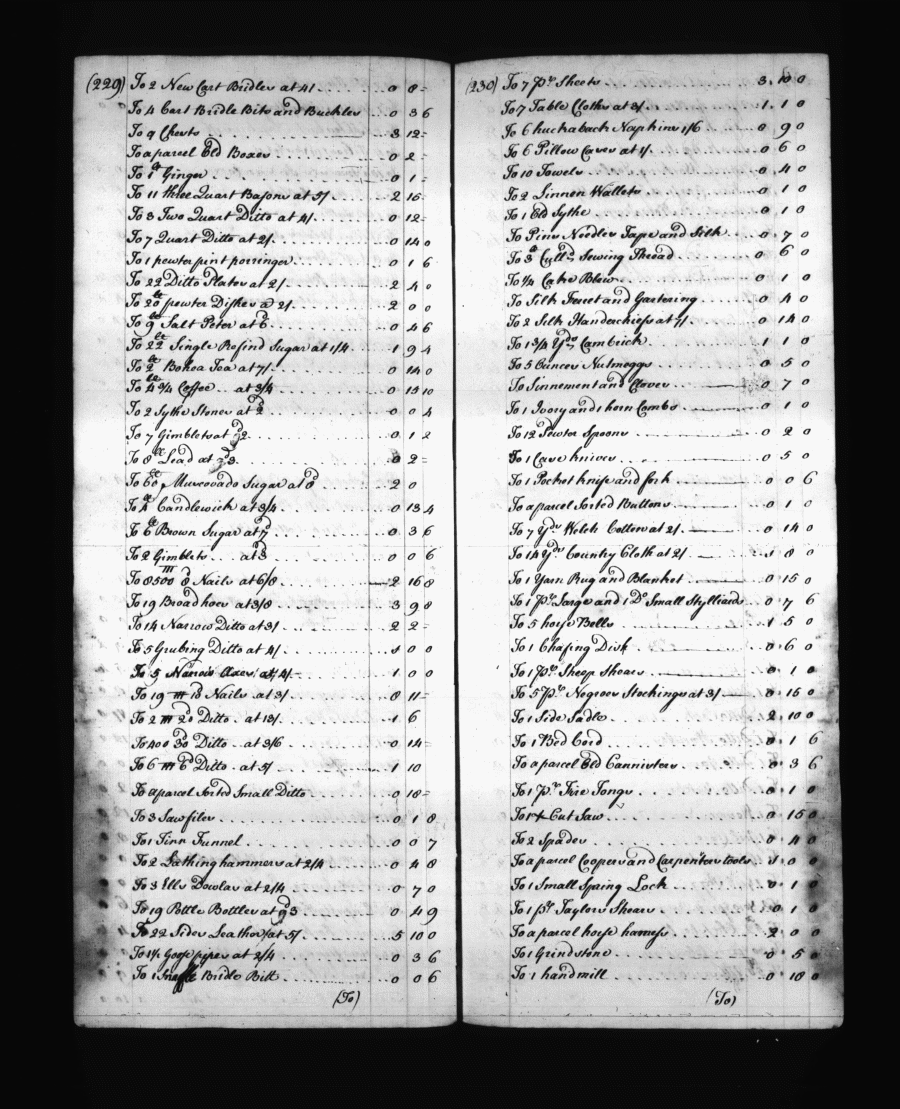 (229) To 2 New Cart Bridles at 4/ . . . . 0 8 =
To 4 Cart Bridle Bits and Buckles . . 0 3 6
To 9 Chests . . . . 3 12 =
To a parcel Old Boxes . . . . 0 2 =
To 1 lb Ginger . . . . 0 1 =
To 11 three Quart Basons at 5/ . . . . 2 15 =
To 3 Two Quart Ditto at 4/ . . . . 0 12 =
To 7 Quart Ditto at 2/ . . . . 0 14 0
To 1 pewter pint porringer . . . . 0 1 6
To 22 Ditto Plates at 2/ . . . . 2 4 0
To 20 lb pewter Dishes @ 2/ . . . . 2 0 0
To 9 lb Salt Peter at 6d . . . . 0 4 6
To 22 lb Single Refind Sugar at 1/4 . . 1 9 4
To 2 lb Bohea Tea at 7/ . . . . 0 14 0
To 4 3/4 lb Coffee . . at 3/4 . . . . 0 15 10
To 2 Sythe Stones at 2d . . . . 0 0 4
To 7 Gimblets at 2d . . . . 0 1 2
To 8 lb Lead at 3d . . . . 0 2 =
To 60 lb Muscovado Sugar at 8d . . 2 0
To 4 lb Candlewick at 3/4 . . . . 0 13 4
To 6 lb Brown Sugar at 7d . . . . 0 3 6
To 2 Gimblets . . . at 3d . . . . 0 0 6
To 8500 8d Nails at 6/8 . . . . 2 16 8
To 19 Broad hoes at 3/8 . . . . 3 9 8
To 14 Narrow Ditto at 3/ . . . . 2 2 =
To 5 Grubing Ditto at 4/ . . . . 1 0 0
To 5 Narrow Axes at 4/ . . . . 1 0 0
To 19 m Nails at 3/ . . . . 8 11 =
To 2 m 20d Ditto . at 13/ . . . . 1 6
To 400 30d Ditto . . at 3/6 . . . . 0 14 =
To 6 m 6d Ditto . at 5/ . . . . 1 10
To a parcel Sorted Small Ditto . . . . 0 18 =
To 3 Saw files . . . . 0 1 8
To 1 Tinn Funnel . . . . 0 0 7
To 2 Lathing hammers at 2/4 . . . . 0 4 8
To 3 Ells Dowlas at 2/4 . . . . 0 7 0
To 19 Pottle Bottles at 3d . . . . 0 4 9
To 22 Sides Leather at 5/ . . . . 5 10 0
To 1 1/2 Groce pipes at 2/4 . . . . 0 3 6
To 1 Snaffle Bridle Bitt . . . . 0 0 6
(To)
(230) To 7 pr Sheets . . . . 3 10 0
To 7 Table Cloths at 3/ . . . . 1 1 0
To 6 huckaback Napkins 1/6 . . . . 0 9 0
To 6 Pillow Cases at 1/ . . . . 0 6 0
To 10 Towels . . . . 0 4 0
To 2 Linnen Wallets . . . . 0 1 0
To 1 Old Sythe . . . . 0 1 0
To Pins Needles Tape and Silk . . 0 7 0
To 3 lb Sewing Thread . . . . 0 6 0
To 1/4 Cake Blew . . . . 0 1 0
To Silk Ferret and Gartering . . . . 0 4 0
To 2 Silk Handerchiefs at 7/ . . . . 0 14 0
To 1 3/4 Yds Cambrick . . . . 1 1 0
To 5 Ounces Nutmeggs . . . . 0 5 0
To Sinnement and Cloves . . . . 0 7 0
To 1 Ivory and 1 horn Combs . . . . 0 1 0
To 12 Pewter Spoons . . . . 0 2 0
To 1 Case knives . . . . 0 5 0
To 1 Pocket knife and fork . . . . 0 0 6
To a parcel Sorted Buttons . . . . 0 1 0
To 7 Yds Welch Cotton at 2/ . . . . 0 14 0
To 14 Yds Country Cloth at 2/ . . . . 1 8 0
To 1 Yarn Rug and Blanket . . . . 0 15 0
To 1 pr Large and 1 Do Small Stylliards . . 0 7 6
To 5 horse Bells . . . . 1 5 0
To 1 Chafing Dish . . . . 0 6 0
To 1 pr Sheep Shears . . . . 0 1 0
To 5 pr Negroes Stockings at 3/ . . 0 15 0
To 1 Side Sadle . . . . 2 10 0
To 1 Bed Cord . . . . 0 1 6
To a parcel Old Cannisters . . . . 0 3 6
To 1 pr Fire Tongs . . . . 0 1 0
To 1 X Cut Saw . . . . 0 15 0
To 2 Spades . . . . 0 4 0
To a parcel Coopers and Carpenters tools . . 1 0 0
To 1 Small Spring Lock . . . . 0 1 0
To 1 pr Taylors Shears . . . . 0 1 0
To a parcel horse harness . . . . 2 0 0
To 1 Grindstone . . . . 0 5 0
To 1 handmill . . . . 0 18 0
(To)